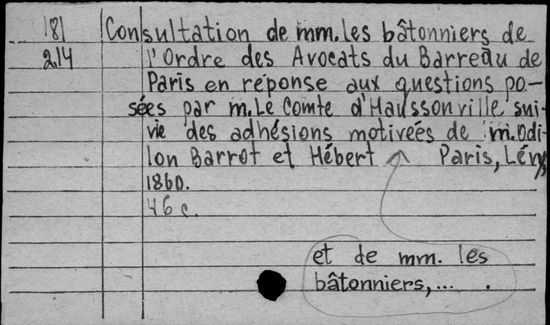 181 Consultation de mm. les bâtonniers de
214 l'Ordre des Avocats du Barreau de
Paris en réponse aux questions po-
sées par m. Le Comte d'Haussonville sui-
vie des adhésions motiveés de m. Odi-
lon Barrot et Hébert Paris, Lévy
1860.
46 c.
et de mm. les
bâtonniers,... .